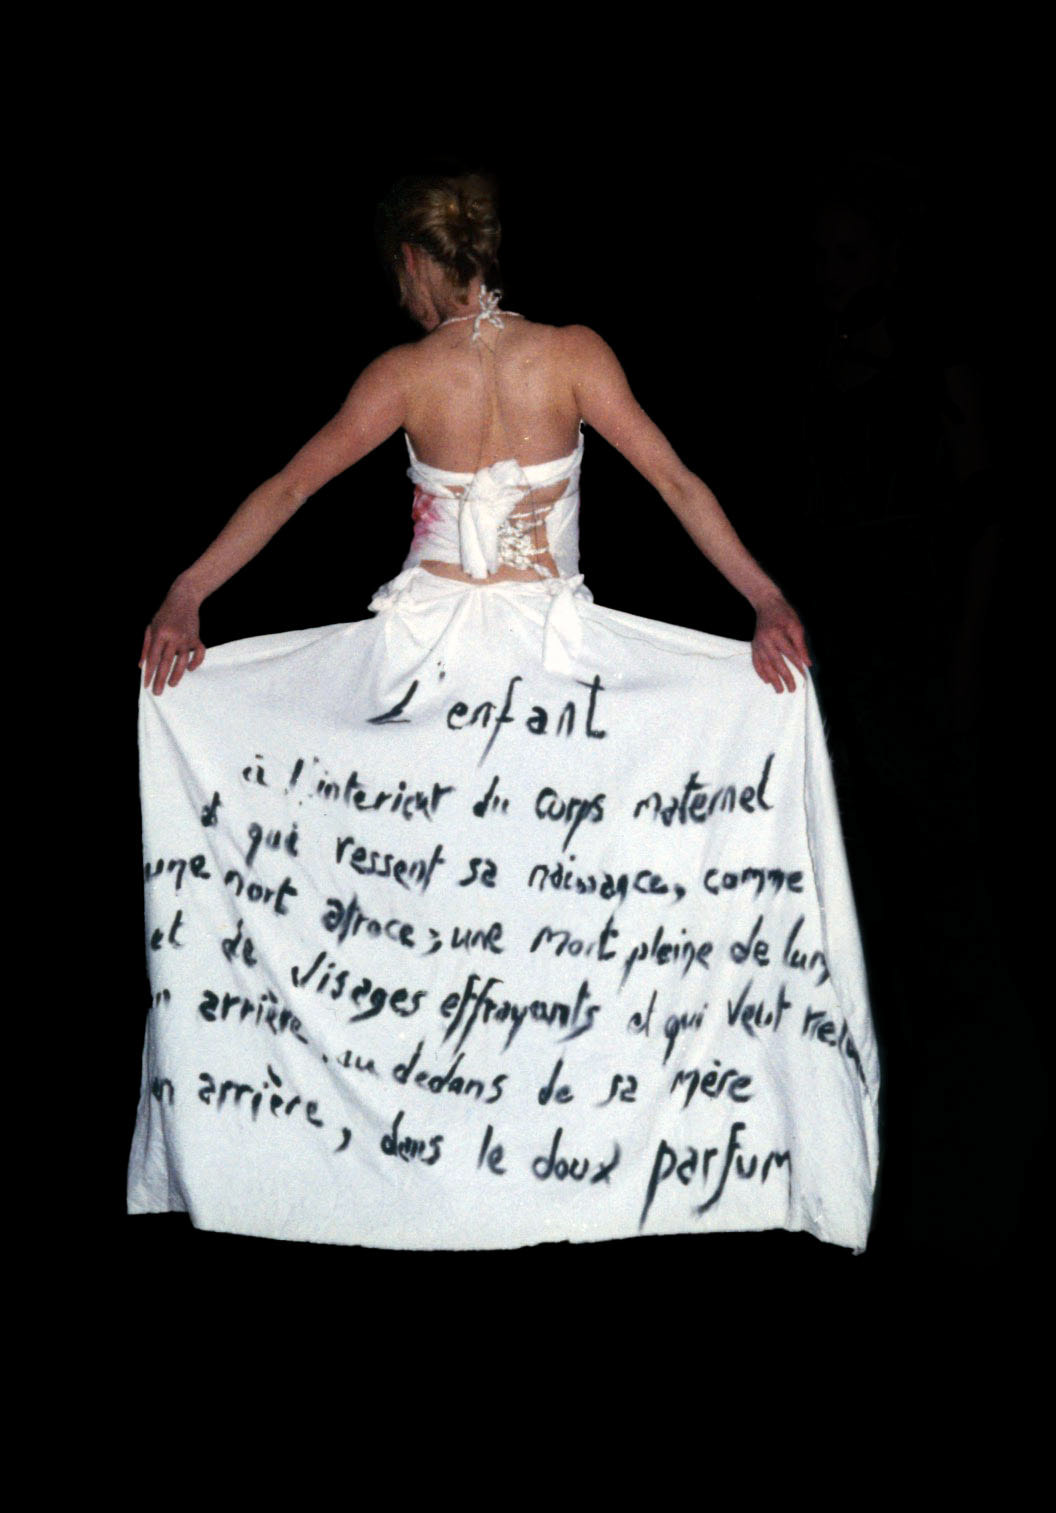 L'enfant
à l'interieur du corps maternel
et qui ressent sa naissance, comme
une mort atroce; une mort pleine de lum
et de visages effrayants et qui veut
n arrière au dedans de sa mère
en arrière, dans le doux parfum